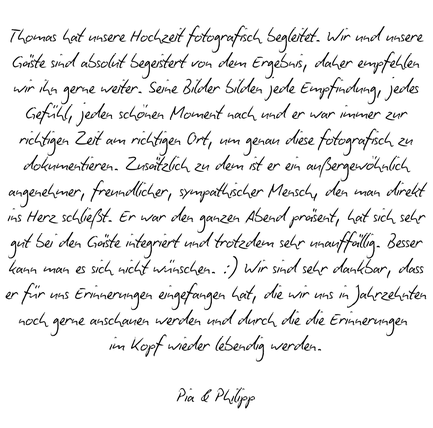 Thomas hat unsere Hochzeit fotografisch begleitet. Wir und unsere
Gäste sind absolut begeistert von dem Ergebnis, daher empfehlen
wir ihn gerne weiter. Seine Bilder bilden jede Empfindung, jedes
Gefühl, jeden schönen Moment nach und er war immer zur
richtigen Zeit am richtigen Ort, um genau diese fotografisch zu
dokumentieren. Zusätzlich zu dem ist er ein außergewöhnlich
angenehmer, freundlicher, sympathischer Mensch, den man direkt
ins Herz schließt. Er war den ganzen Abend präsent, hat sich sehr
gut bei den Gäste integriert und trotzdem sehr unauffällig. Besser
kann man es sich nicht wünschen. :) Wir sind sehr dankbar, dass
er für uns Erinnerungen eingefangen hat, die wir uns in Jahrzehnten
noch gerne anschauen werden und durch die die Erinnerungen
im Kopf wieder lebendig werden.
Pia & Philipp